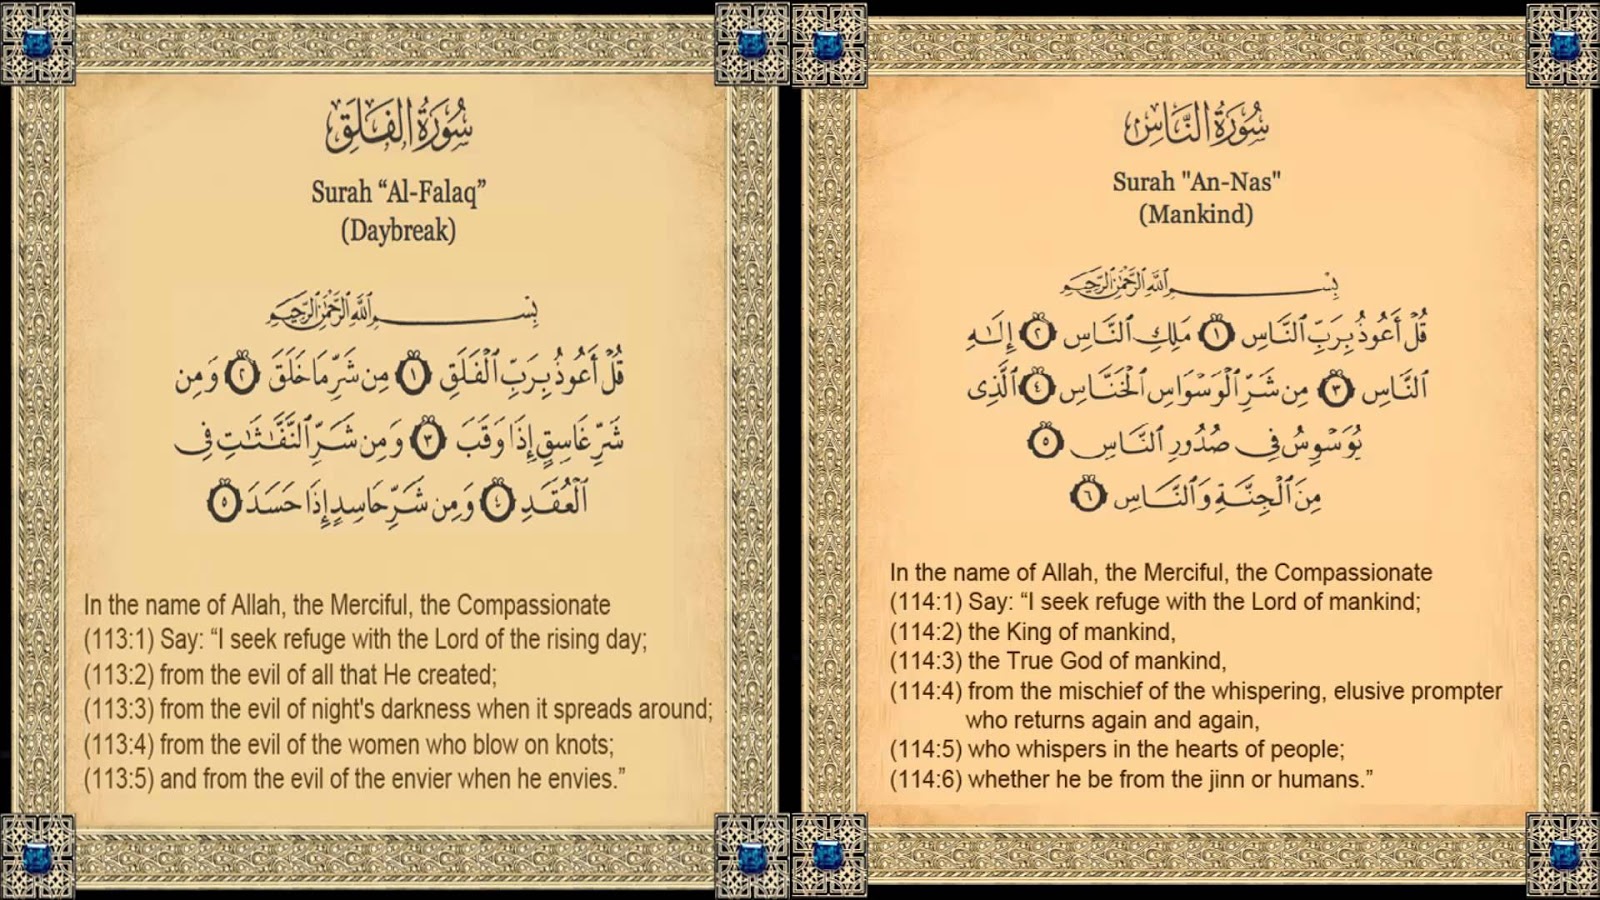 سُورَةُ الْفَلَقِ
Surah “Al-Falaq”
(Daybreak)
بِسْمِ اللَّهِ الرَّحْمَٰنِ الرَّحِيمِ
قُلْ أَعُوذُ بِرَبِّ الْفَلَقِ ١ مِن شَرِّ مَا خَلَقَ ٢ وَمِن
شَرِّ غَاسِقٍ إِذَا وَقَبَ ٣ وَمِن شَرِّ النَّفَّاثَاتِ فِي
الْعُقَدِ ٤ وَمِن شَرِّ حَاسِدٍ إِذَا حَسَدَ ٥
In the name of Allah, the Merciful, the Compassionate
(113:1) Say: “I seek refuge with the Lord of the rising day;
(113:2) from the evil of all that He created;
(113:3) from the evil of night's darkness when it spreads around;
(113:4) from the evil of the women who blow on knots;
(113:5) and from the evil of the envier when he envies.”
سُورَةُ النَّاسِ
Surah "An-Nas"
(Mankind)
بِسْمِ اللَّهِ الرَّحْمَٰنِ الرَّحِيمِ
قُلْ أَعُوذُ بِرَبِّ النَّاسِ ١ مَلِكِ النَّاسِ ٢ إِلَٰهِ
النَّاسِ ٣ مِن شَرِّ الْوَسْوَاسِ الْخَنَّاسِ ٤ الَّذِي
يُوَسْوِسُ فِي صُدُورِ النَّاسِ ٥
مِنَ الْجِنَّةِ وَالنَّاسِ ٦
In the name of Allah, the Merciful, the Compassionate
(114:1) Say: “I seek refuge with the Lord of mankind;
(114:2) the King of mankind,
(114:3) the True God of mankind,
(114:4) from the mischief of the whispering, elusive prompter
who returns again and again,
(114:5) who whispers in the hearts of people;
(114:6) whether he be from the jinn or humans.”